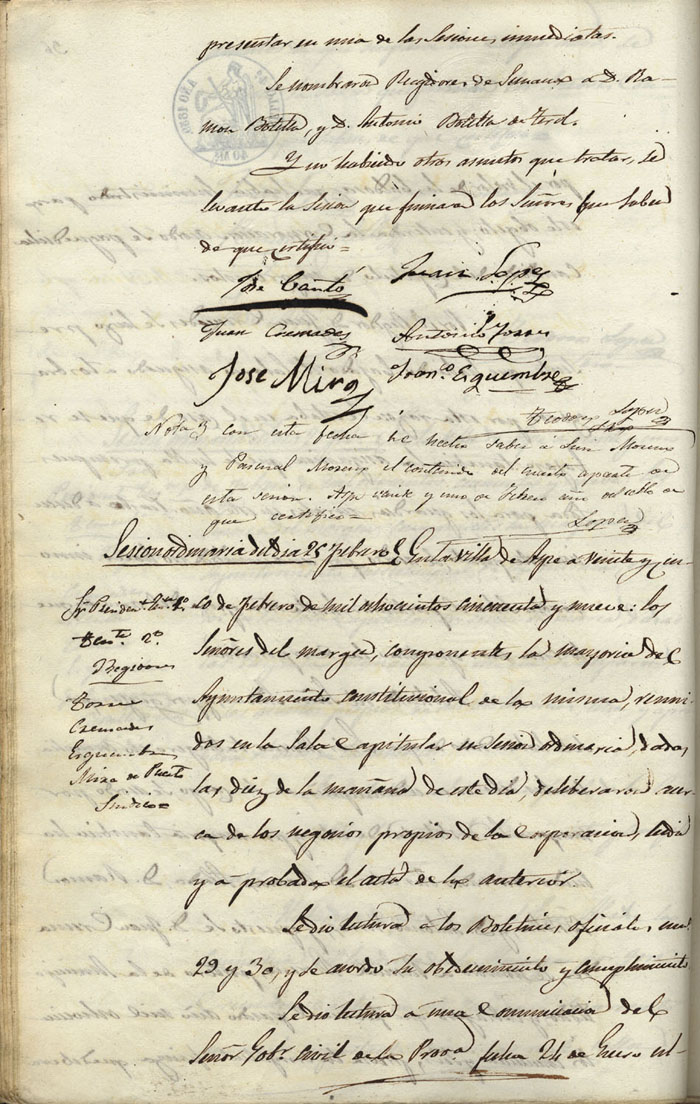 presentar en una de las Sesiones inmediatas.
Se nombraron Regidores de Semana a D. Ra-
mon Botella, y D. Antonio Botella de
Y no habiendo otros asuntos que tratar, se
levantó la Sesion que firmaran los Señores que saben
de que certifico=
José Cantó Juan Lopez
Juan Cremades Antonio Torres
Jose Mira Franco. Esquembre
Lopez
Nota y con esta fecha he hecho saber á Luis Moreno
y Pascual Moreno el contenido del cuarto aparte de
esta sesion. Aspe veinte y uno de Febrero año del sello de
que certifico=
Lopez
Sesion ordinaria del dia 25 Febrero En la villa de Aspe a veinte y cin-
co de febrero de mil ochocientos cincuenta y nueve: los
Señores del margen, componentes la mayoria del
Ayuntamiento constitucional de la misma, reuni-
dos en la Sala Capitular en Sesion ordinaria, dadas
las diez de la mañana de este dia, deliberaron acer-
ca de los negocios propios de la Corporacion, leida
y aprobada el acta de la anterior.
Sr. Presidente
Tente. 2º
Regidores
Torres
Cremades
Esquembre
Mira de
Sindico
Se dio lectura a los Boletines oficiales num.
29 y 30, y se acordo su obedecimiento y cumplimiento
Se dio lectura a una Comunicacion del
Señor Gobr. Civil de la Prova. fecha 24 de Enero ul-